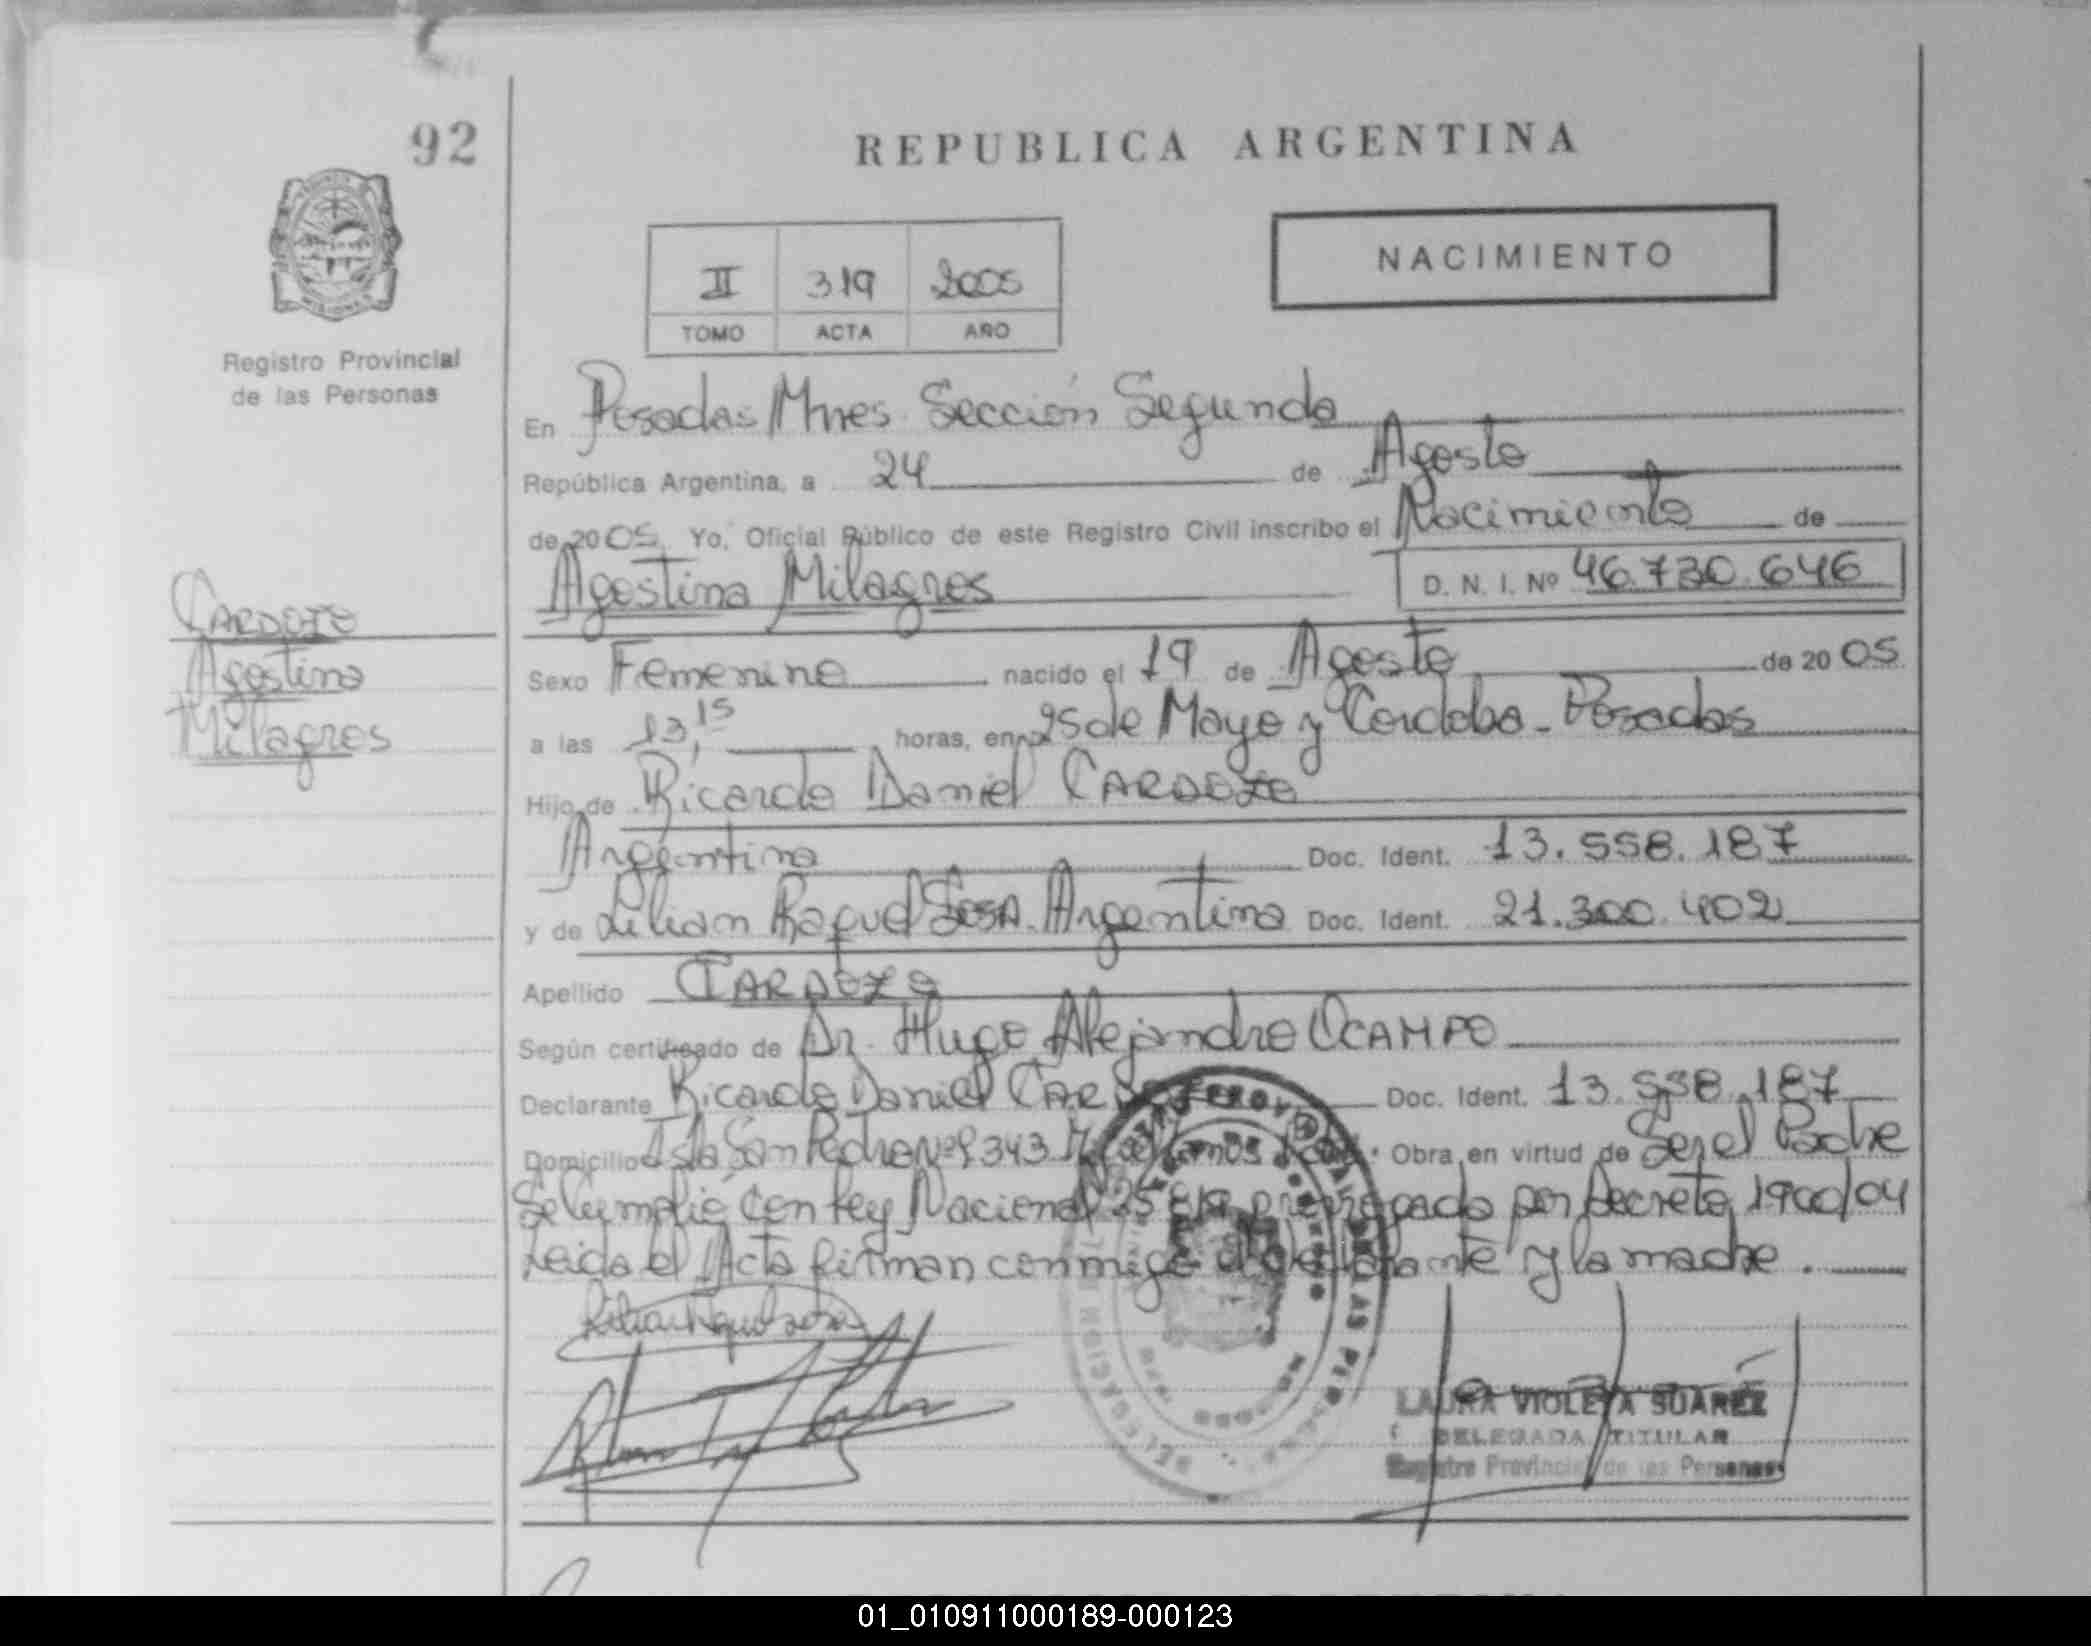 92
REPUBLICA ARGENTINA
NACIMIENTO
II 319 2005
TOMO ACTA AÑO
Registro Provincial
de las Personas
En Posadas Mnes. Sección Segunda
República Argentina, a 24 de Agosto
de 2005. Yo, Oficial Público de este Registro Civil inscribo el Nacimiento de
Agostina Milagros D. N. I. Nº 46.730.646
CARDOZO
Agostina
Milagros
Sexo Femenino nacido el 19 de Agosto de 2005
a las 13,15 horas, en 25 de Mayo y Cordoba - Posadas
Hijo de Ricardo Daniel CARDOZO
Argentino Doc. Ident. 13.558.187
y de Lilian Raquel SOSA. Argentina Doc. Ident. 21.300.402
Apellido CARDOZO
Según certificado de Dr. Hugo Alejandro OCAMPO
Declarante Ricardo Daniel Doc. Ident. 13.558.187
Domicilio Isla San Pedro Nº 9343 Obra en virtud de Ser el Padre
Se cumplió con Ley Nacional prorrogada por Decreto 1900/04
Leida el Acta firman conmigo el declarante y la madre.
LAURA VIOLETA SUAREZ
DELEGADA TITULAR
Registro Provincial de las Personas
01_010911000189-000123